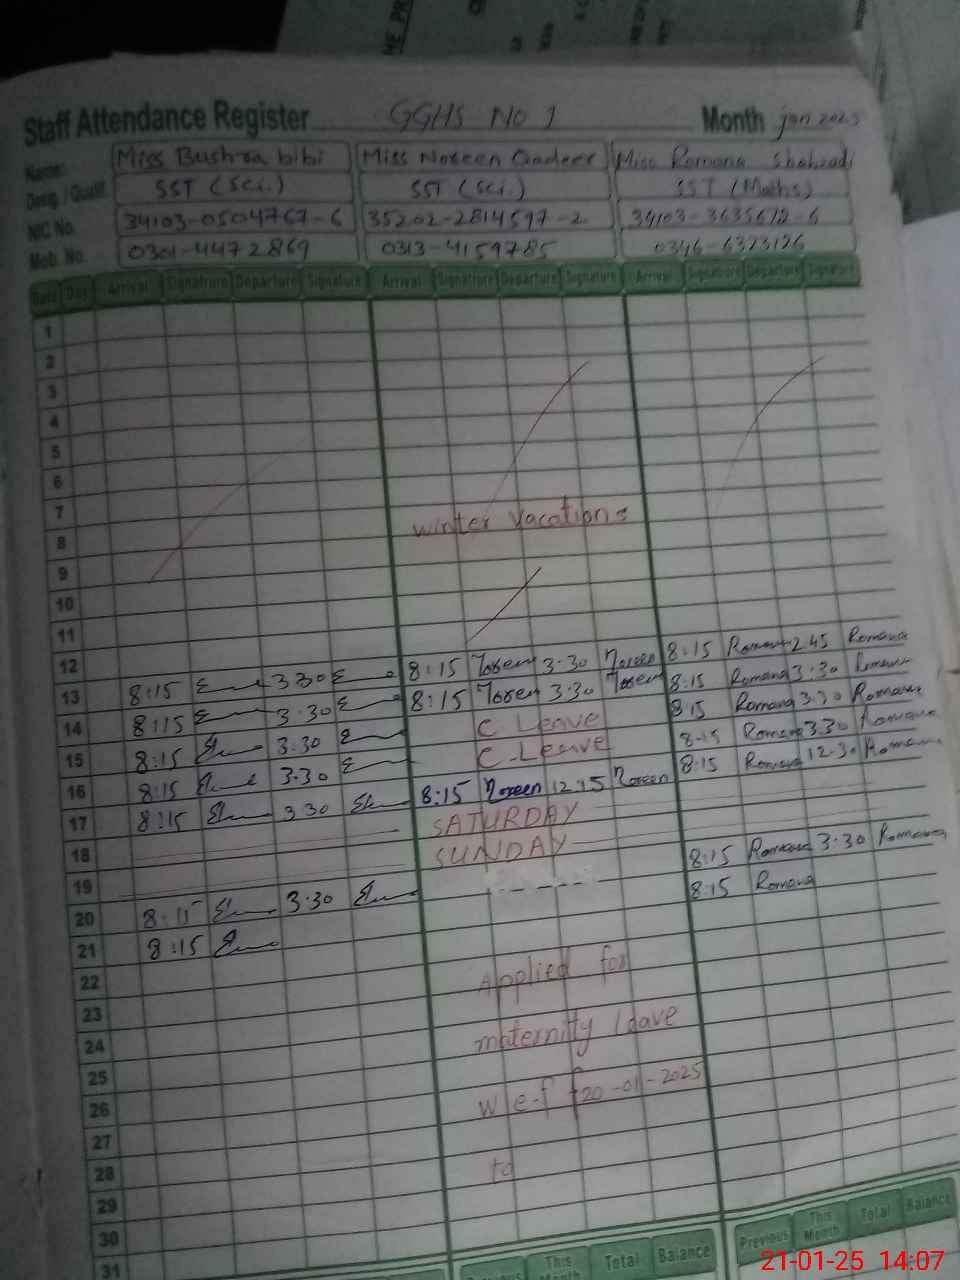 Staff Attendance Register GGHS No 1 Month jan 2025
Name: Miss Bushraa bibi Miss Noreen Qadeer Miss Romana Shahzadi
Desig. / Qualif. SST (Sci.) SST (Sci.) SST (Maths)
NIC No. 34103-0504767-6 35202-2814597-2 34103-3635612-6
Mob. No. 0301-4472869 0313-4159785 0346-6323126
Date Day Arrival Signature Departure Signature Arrival Signature Departure Signature Arrival Signature Departure Signature
1
2
3
4
5
6
7 winter vacations
8
9
10
11
12
13 8:15 3 30 8:15 Noreen 3-30 Noreen 8:15 Romana 2.45 Romana
14 8:15 3.30 8:15 Noreen 3:30 Noreen 8:15 Romana 3:30 Romana
15 8:15 3.30 C. Leave 8:15 Romana 3.30 Romana
16 8:15 3.30 C. Leave 8:15 Romana 3.30 Romana
17 8:15 3 30 8:15 Noreen 12:15 Noreen 8:15 Romana 12.30 Romana
18 SATURDAY
19 SUNDAY
20 8:15 3.30 8:15 Romana 3:30 Romana
21 8:15 8:15 Romana
22 Applied for
23
24 maternity leave
25
26 w.e.f 20-01-2025
27
28 to
29
30
31
Previous This Month Total Balance Previous This Month Total Balance
21-01-25 14:07